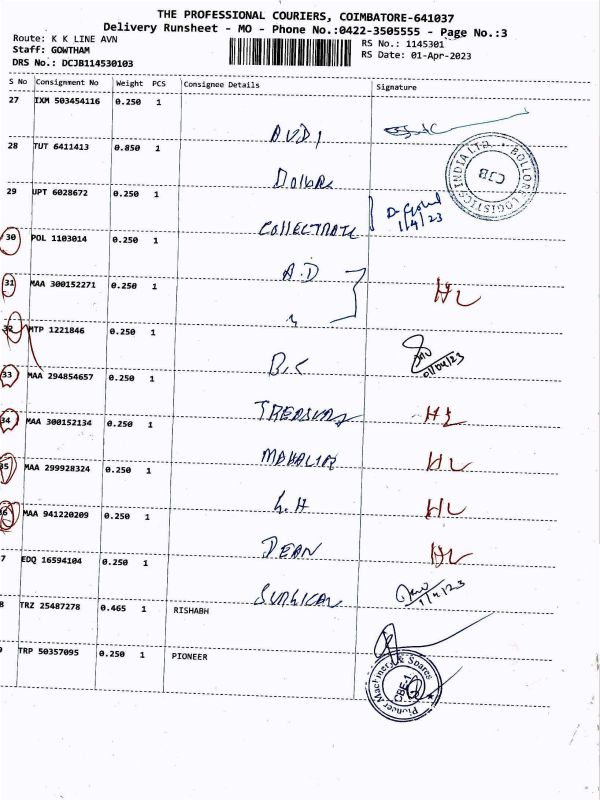 THE PROFESSIONAL COURIERS, COIMBATORE-641037
Delivery Runsheet - MO - Phone No.:0422-3505555 - Page No.:3
Route: K K LINE AVN
RS No.: 1145301
Staff: GOWTHAM
RS Date: 01-Apr-2023
DRS No.: DCJB114530103
S No Consignment No Weight PCS Consignee Details Signature
27 IXM 503454116 0.250 1 AUDI
28 TUT 6411413 0.850 1
BOLLORE LOGISTICS INDIA LTD. CJB
29 UPT 6028672 0.250 1 COLLECTRATE
1/4/23
30 POL 1103014 0.250 1 A.D
31 MAA 300152271 0.250 1 HL
32 MTP 1221846 0.250 1 B.C
01/04/23
33 MAA 294854657 0.250 1 TREASURY HL
34 MAA 300152134 0.250 1 HL
35 MAA 299928324 0.250 1 G.H HL
36 MAA 941220209 0.250 1 DEAN HL
7 EDQ 16594104 0.250 1 SURGICAL
1/4/23
8 TRZ 25487278 0.465 1 RISHABH
9 TRP 50357095 0.250 1 PIONEER
Pioneer Machinery & Spares CBE-1